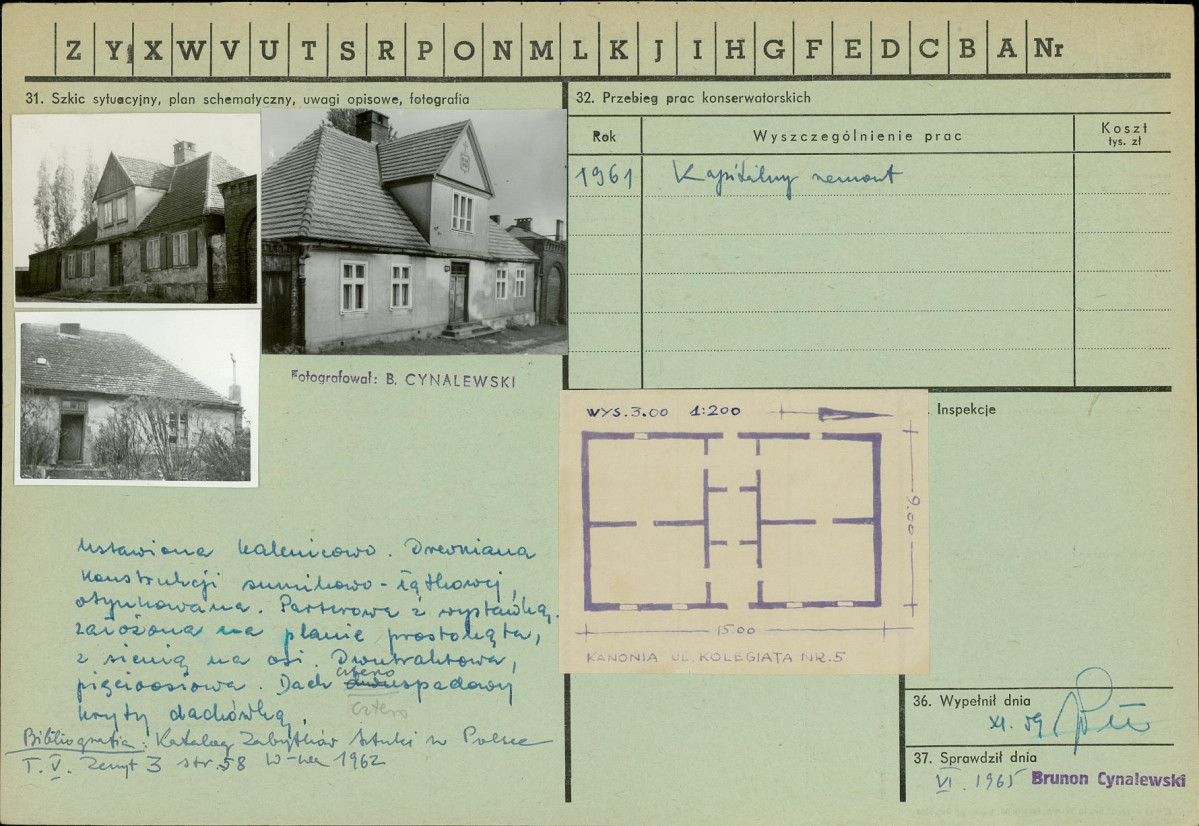 Z Y X W V U T S R P O N M L K J I H G F E D C B A Nr
31. Szkic sytuacyjny, plan schematyczny, uwagi opisowe, fotografia
Fotografował: B. CYNALEWSKI
Ustawiona kalenicowo. Drewniana
konstrukcji sumikowo-łątkowej,
otynkowana. Parterowa z wystawką.
Założona na planie prostokąta,
z sienią na osi. Dwutraktowa,
pięcioosiowa. Dach czterospadowy
cztero
kryty dachówką.
Bibliografia: Katalog Zabytków Sztuki w Polsce
T. V. Zeszyt 3 str. 58 W-wa 1962
32. Przebieg prac konserwatorskich
Rok Wyszczególnienie prac Koszt
tys. zł
1961 Kapitalny remont
WYS. 3.00 1:200
9.00
15.00
KANONIA UL. KOLEGIATA NR. 5
Inspekcje
36. Wypełnił dnia
XI. 59
37. Sprawdził dnia
VI. 1965 Brunon Cynalewski